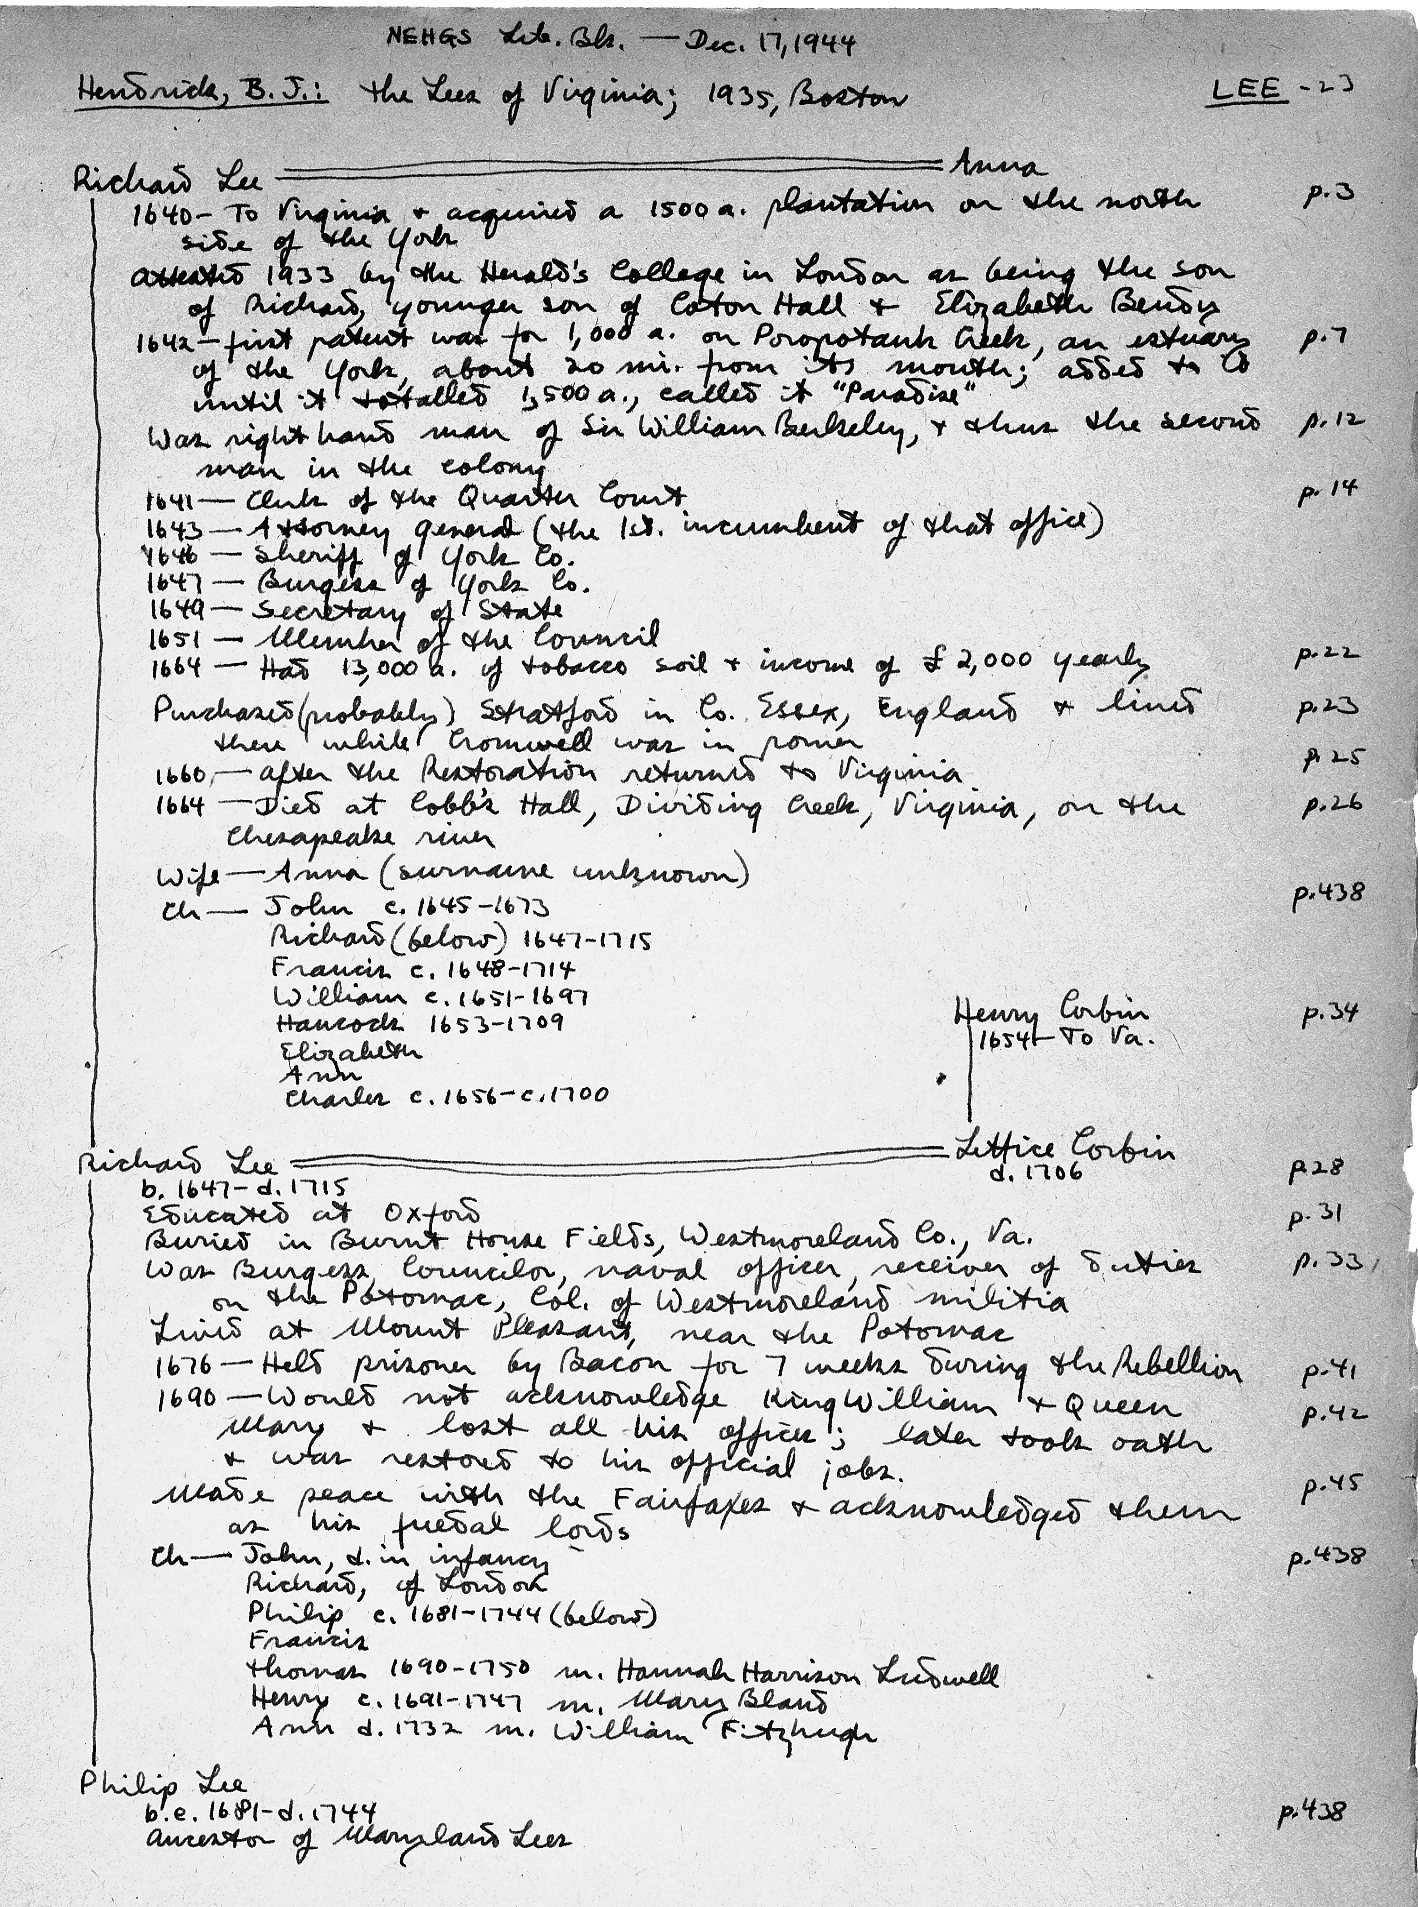 NEHGS Lib. Bk. — Dec. 17, 1944
Hendrick, B. J.: The Lees of Virginia; 1935, Boston LEE - 23
Richard Lee Anna
1640 - To Virginia + acquired a 1500 a. plantation on the north p. 3
side of the York
Attested 1933 by the Herald's College in London as being the son
of Richard, younger son of Coton Hall + Elizabeth Bendy
1642 - first patent was for 1,000 a. on Poropotank Creek, an estuary p. 7
of the York, about 20 mi. from its mouth; added to it
until it totalled 1,500 a., called it "Paradise"
Was right hand man of Sir William Berkeley, + thus the second p. 12
man in the colony
1641 — Clerk of the Quarter Court p. 14
1643 — Attorney General (the 1st. incumbent of that office)
1646 — Sheriff of York Co.
1647 — Burgess of York Co.
1649 — Secretary of State
1651 — Member of the Council
1664 — Had 13,000 a. of tobacco soil + income of £ 2,000 yearly p. 22
Purchased (probably) Stratford in Co. Essex, England + lived p. 23
there while Cromwell was in power
1660 — after the Restoration returned to Virginia p. 25
1664 — Died at Cobb's Hall, Dividing Creek, Virginia, on the p. 26
Chesapeake river
Wife — Anna (surname unknown)
Ch — John c. 1645-1673 p. 438
Richard (below) 1647-1715
Francis c. 1648-1714
William c. 1651-1697
Hancock 1653-1709
Elizabeth
Ann
Charles c. 1656-c. 1700
Henry Corbin p. 34
1654 - To Va.
Richard Lee Lettice Corbin
b. 1647- d. 1715 d. 1706 p. 28
Educated at Oxford
Buried in Burnt House Fields, Westmoreland Co., Va. p. 31
Was Burgess, Councilor, naval officer, receiver of duties p. 33
on the Potomac, Col. of Westmoreland militia
Lived at Mount Pleasant, near the Potomac
1676 — Held prisoner by Bacon for 7 weeks during the Rebellion p. 41
1690 — Would not acknowledge King William + Queen p. 42
Mary + lost all his offices; later took oath
+ was restored to his official jobs.
Made peace with the Fairfaxes + acknowledged them p. 45
as his fuedal lords
Ch — John, d. in infancy p. 438
Richard, of London
Philip c. 1681-1744 (below)
Francis
Thomas 1690-1750 m. Hannah Harrison Ludwell
Henry c. 1691-1747 m. Mary Bland
Ann d. 1732 m. William Fitzhugh
Philip Lee
b. c. 1681-d. 1744 p. 438
Ancestor of Maryland Lees